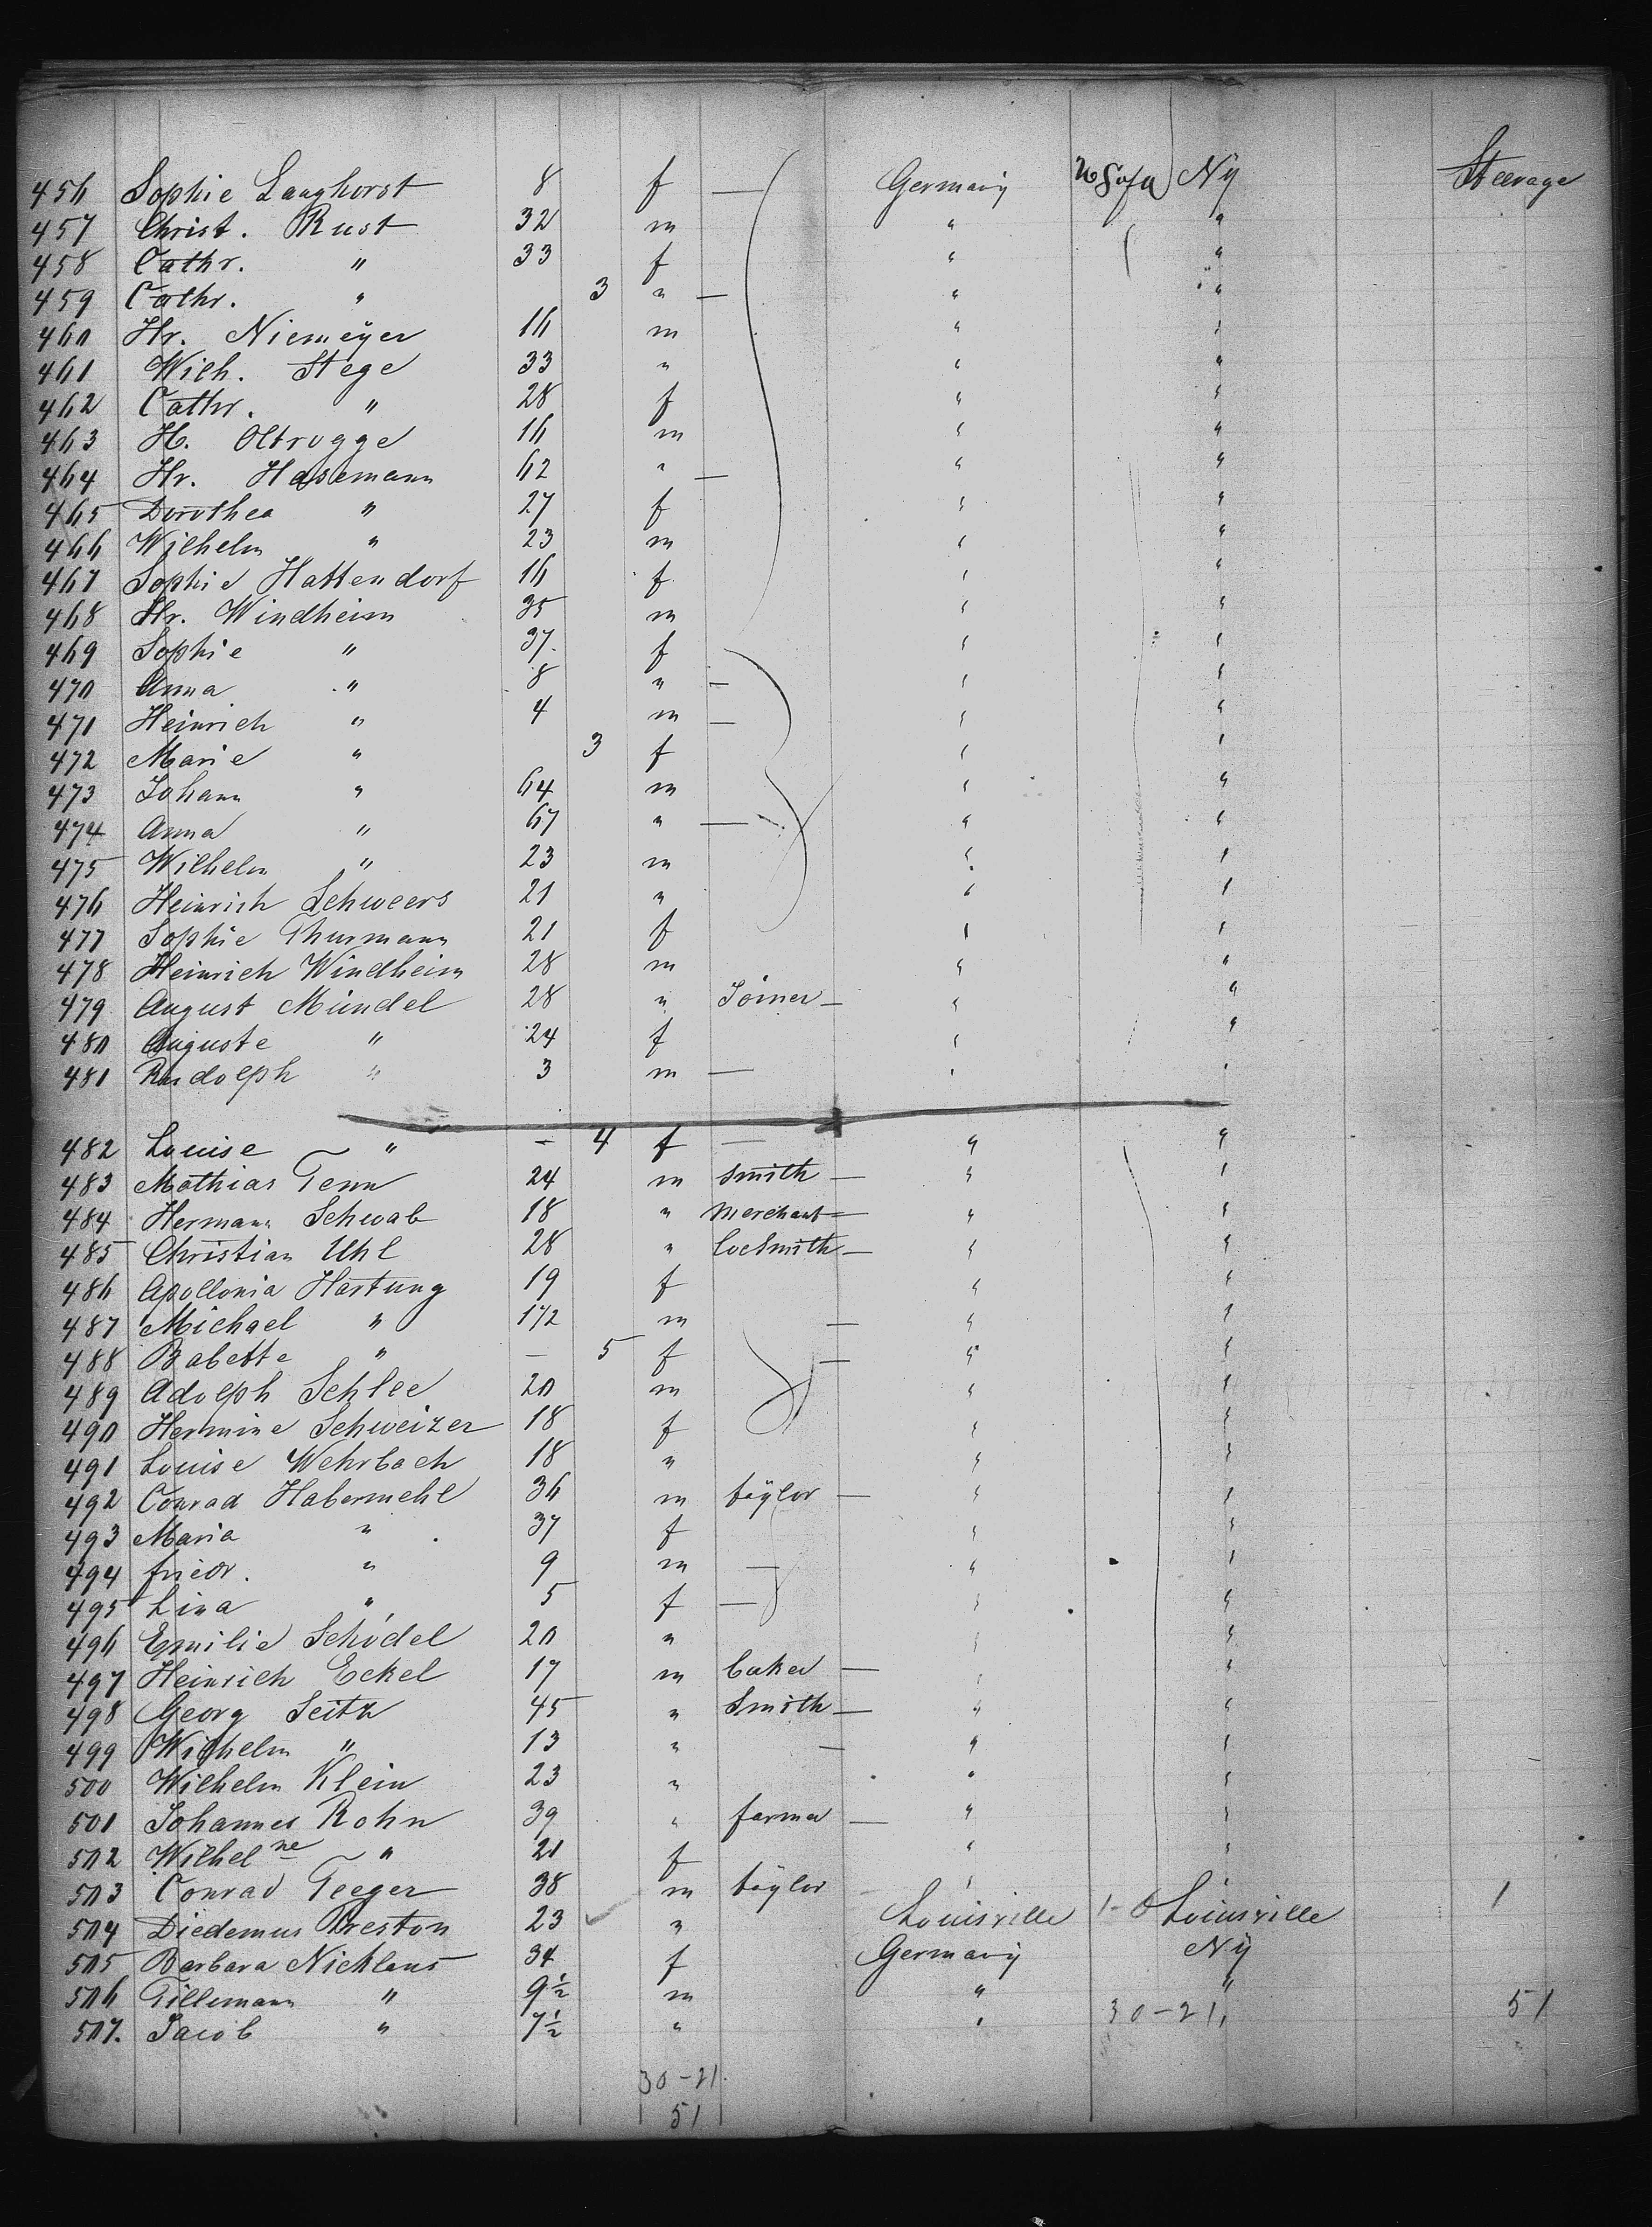 456 Sophie Langhorst 8 f — Germany Ny Steerage
457 Christ. Rust 32 m " "
458 Cathr. " 33 f " "
459 Cathr. " 3 " — " "
460 Hr. Niemeyer 16 m " "
461 Wilh. Stege 33 " " "
462 Cathr. " 28 f " "
463 H. Oltrogge 16 m " "
464 Hr. Hasemann 62 " — " "
465 Dorothea " 27 f " "
466 Wilhelm " 23 m " "
467 Sophie Hattendorf 16 f " "
468 Hr. Windheim 35 m " "
469 Sophie " 37 f " "
470 Anna " 8 " — " "
471 Heinrich " 4 m — " "
472 Marie " 3 f " "
473 Johann " 64 m " "
474 Anna " 67 " — " "
475 Wilhelm " 23 m " "
476 Heinrich Schweers 21 " " "
477 Sophie Thurmann 21 f " "
478 Heinrich Windheim 28 m " "
479 August Mündel 28 " Joiner — " "
480 Auguste " 24 f " "
481 Rudolph " 3 m — " "
482 Louise " — 4 f — " "
483 Mathias Tenn 24 m smith — " "
484 Hermann Schwab 18 " Merchant — " "
485 Christian Uhl 28 " locsmith — " "
486 Apollonia Hartung 19 f " "
487 Michael " 1 1/2 m — " "
488 Babette " — 5 f — " "
489 Adolph Schlee 20 m " "
490 Hermine Schweizer 18 f " "
491 Louise Wehrbach 18 " " "
492 Conrad Habermehl 36 m taylor — " "
493 Maria " 37 f " "
494 friedr. " 9 m — " "
495 Lina " 5 f — " "
496 Emilie Schödel 20 " " "
497 Heinrich Eckel 17 m baker — " "
498 Georg Seitz 45 " Smith — " "
499 Wilhelm " 13 " — " "
500 Wilhelm Klein 23 " " "
501 Johannes Rohn 39 " farmer — " "
502 Wilhelne " 21 f " "
503 Conrad Teeger 38 m taylor — " "
504 Diedemus Preston 23 " Louisville 1-0 Louisville 1
505 Barbara Nicklaus 34 f Germany Ny
506 Tillemann " 9½ m " "
507. Jacob " 7½ " " 30-21 " 51
30-21
51